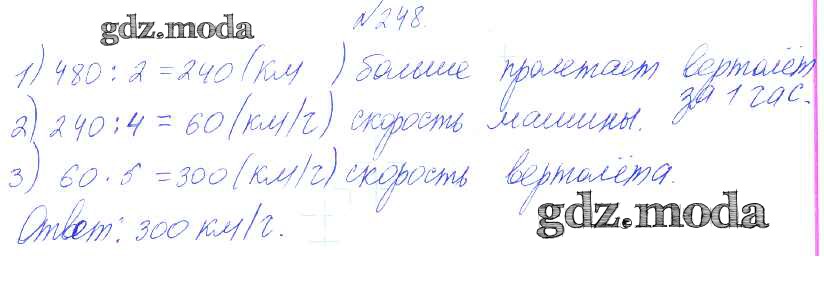 №248.
gdz.moda
1) 480 : 2 = 240 (км ) больше пролетает вертолёт
за 1 час.
2) 240 : 4 = 60 (км/ч) скорость машины.
3) 60 · 5 = 300 (км/ч) скорость вертолёта.
Ответ: 300 км/ч.
gdz.moda